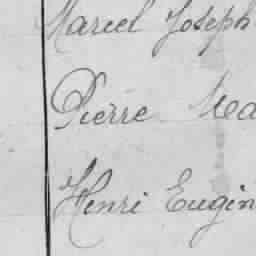 Marcel Joseph
Pierre
Henri Eugèn